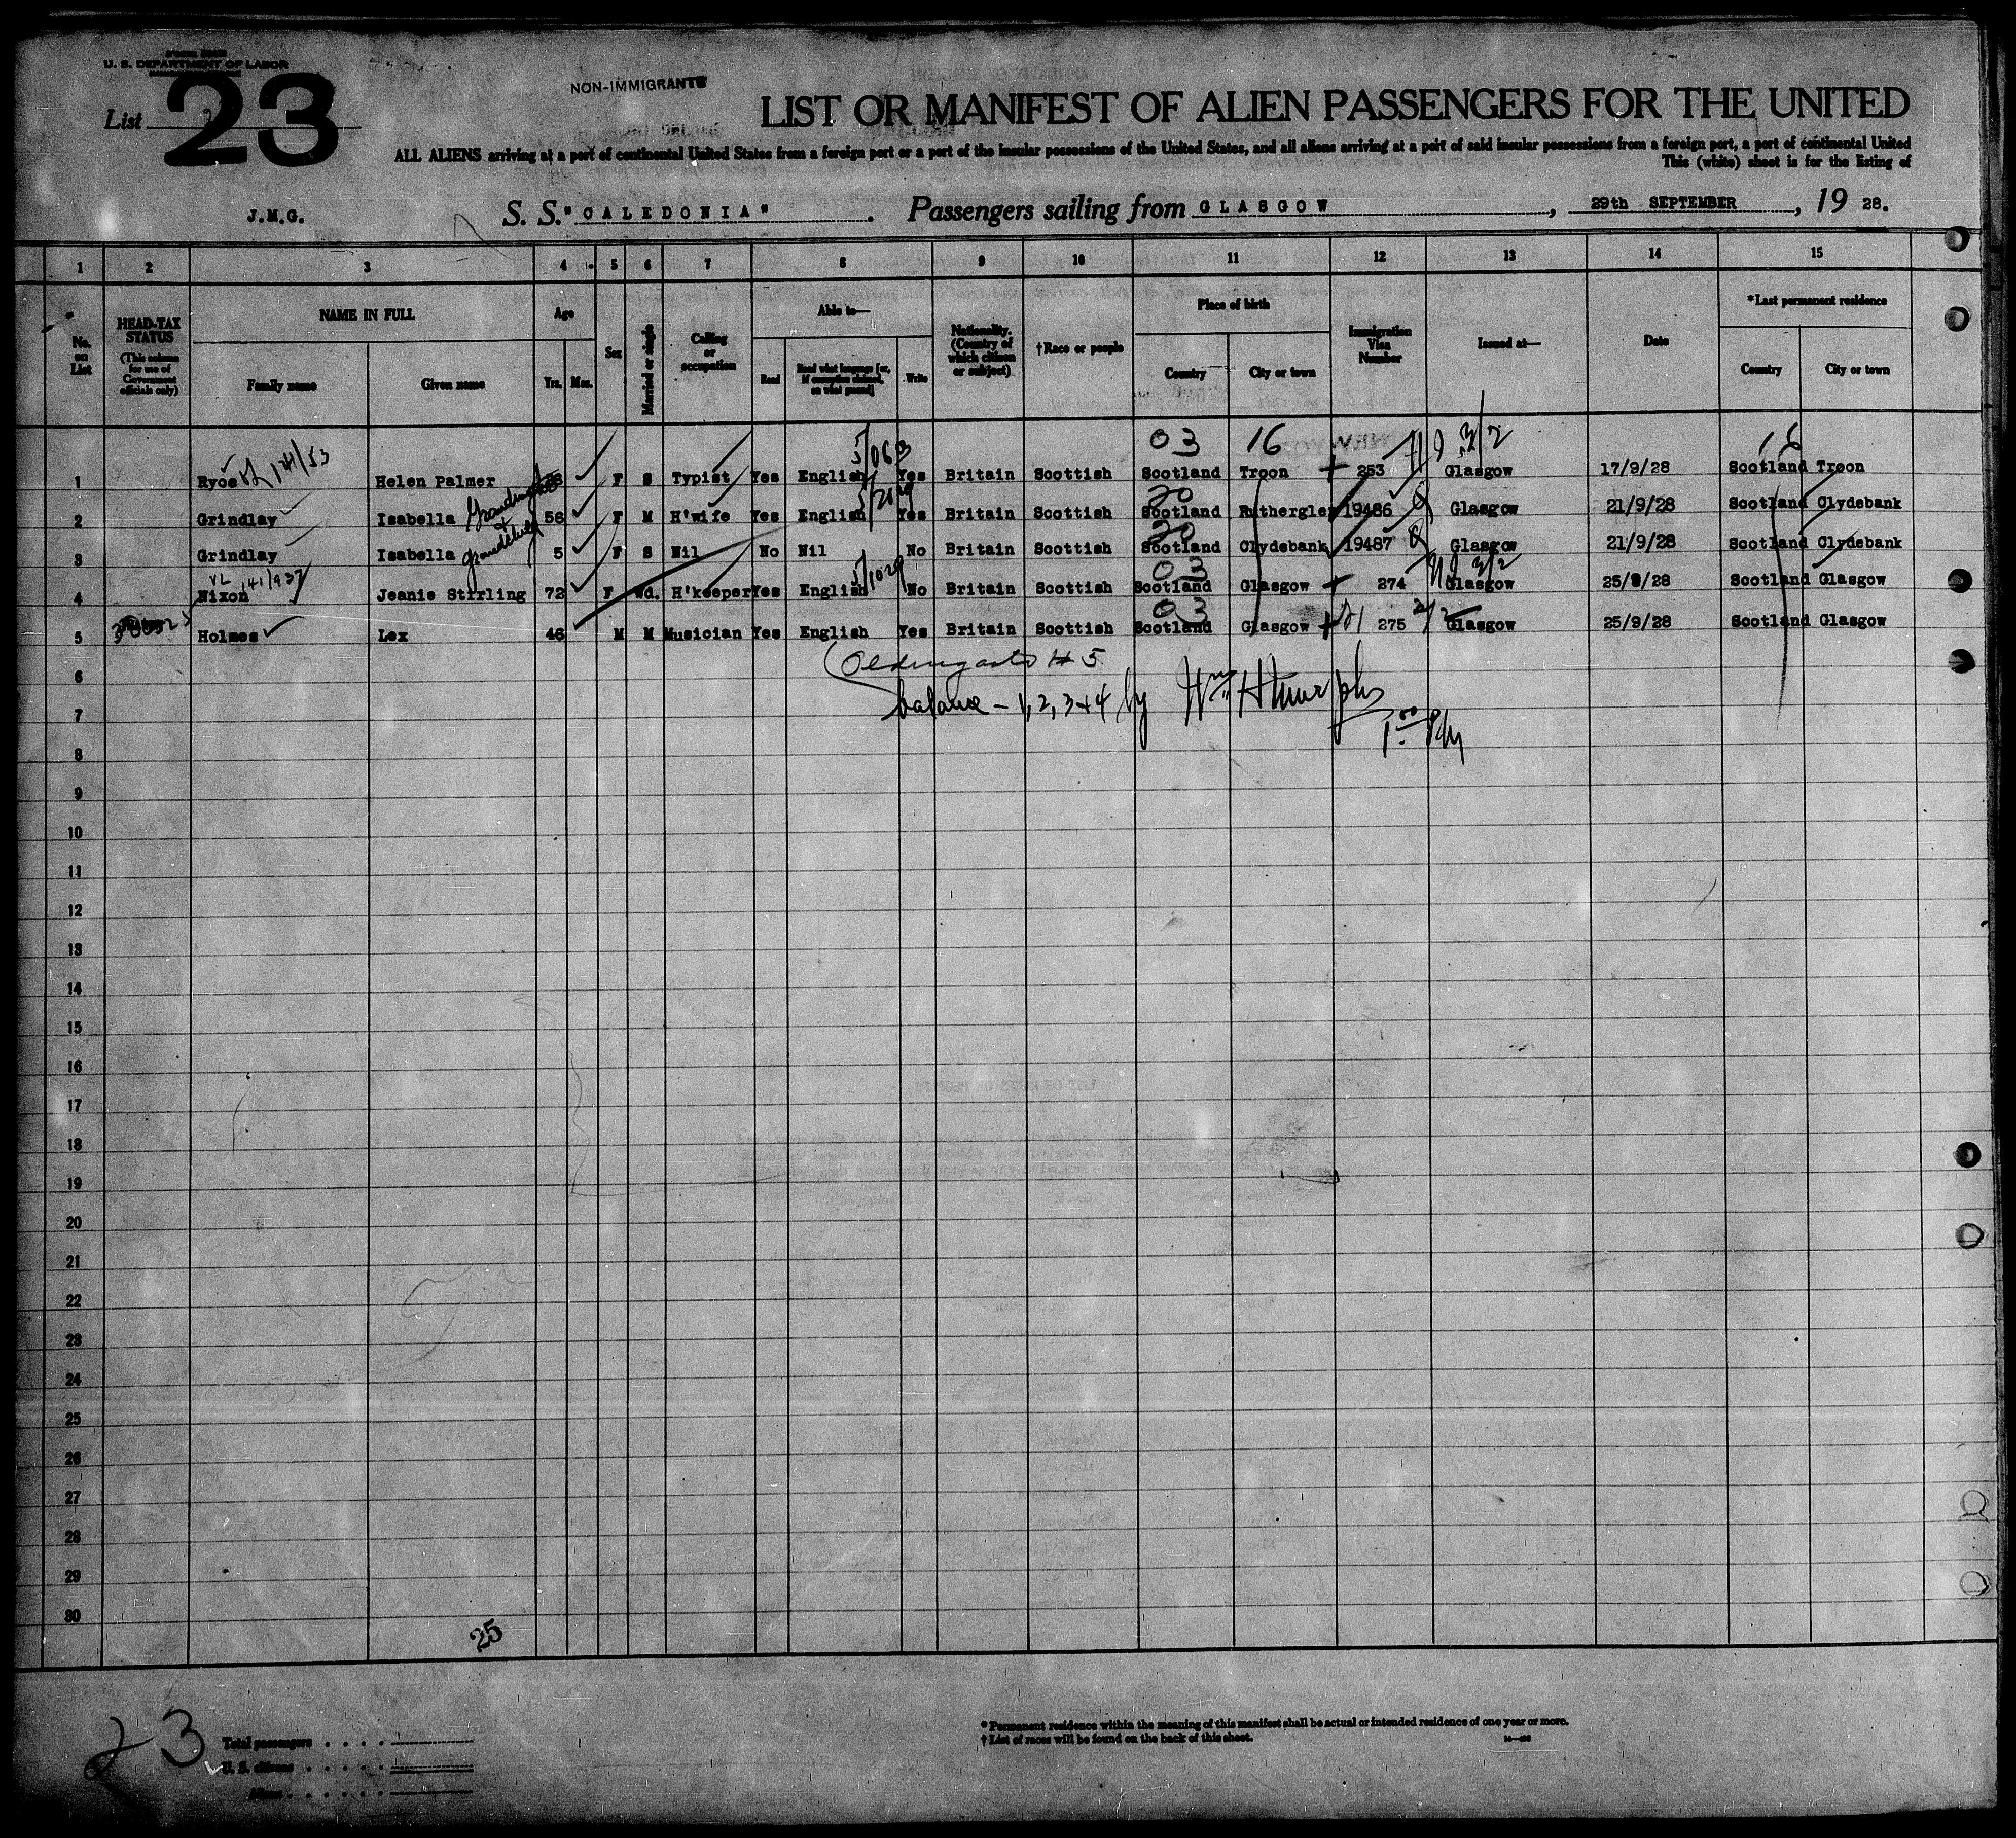 U. S. DEPARTMENT OF LABOR
NON-IMMIGRANTS
List 23
LIST OR MANIFEST OF ALIEN PASSENGERS FOR THE UNITED
ALL ALIENS arriving at a port of continental United States from a foreign port or a port of the insular possessions of the United States, and all aliens arriving at a port of said insular possessions from a foreign port, a port of continental United
This (white) sheet is for the listing of
J.M.G. S. S. "CALEDONIA". Passengers sailing from GLASGOW, 29th SEPTEMBER, 19 28.
1 2 3 4 5 6 7 8 9 10 11 12 13 14 15
No. on List
HEAD-TAX STATUS (This column for use of Government officials only)
NAME IN FULL
Family name Given name
Age
Yrs. Mos.
Sex
Married or single
Calling or occupation
Able to—
Read Read what language [or, if exemption claimed, on what ground] Write
Nationality. (Country of which citizen or subject)
†Race or people
Place of birth
Country City or town
Immigration Visa Number
Issued at—
Date
*Last permanent residence
Country City or town
03 16 3/2 16
1 Ryce 141/53 Helen Palmer F S Typist Yes English Yes Britain Scottish Scotland Troon 253 Glasgow 17/9/28 Scotland Troon
2 Grindlay Isabella 56 F M H'wife Yes English Yes Britain Scottish 20 Scotland Rutherglen 19486 Glasgow 21/9/28 Scotland Clydebank
3 Grindlay Isabella 5 F S Nil No Nil No Britain Scottish 20 Scotland Clydebank 19487 Glasgow 21/9/28 Scotland Clydebank
4 Nixon 141/937 Jeanie Stirling 72 F Wd. H'keeper Yes English No Britain Scottish 03 Scotland Glasgow 274 Glasgow 25/9/28 Scotland Glasgow
5 Holmes Lex 46 M M Musician Yes English Yes Britain Scottish 03 Scotland Glasgow 275 Glasgow 25/9/28 Scotland Glasgow
6 # 5
7 balance - 1, 2, 3 + 4 by Wm H Murphy
8
9
10
11
12
13
14
15
16
17
18
19
20
21
22
23
24
25
26
27
28
29
30
25
23
Total passengers
U. S. citizens
Aliens
* Permanent residence within the meaning of this manifest shall be actual or intended residence of one year or more.
† List of races will be found on the back of this sheet.